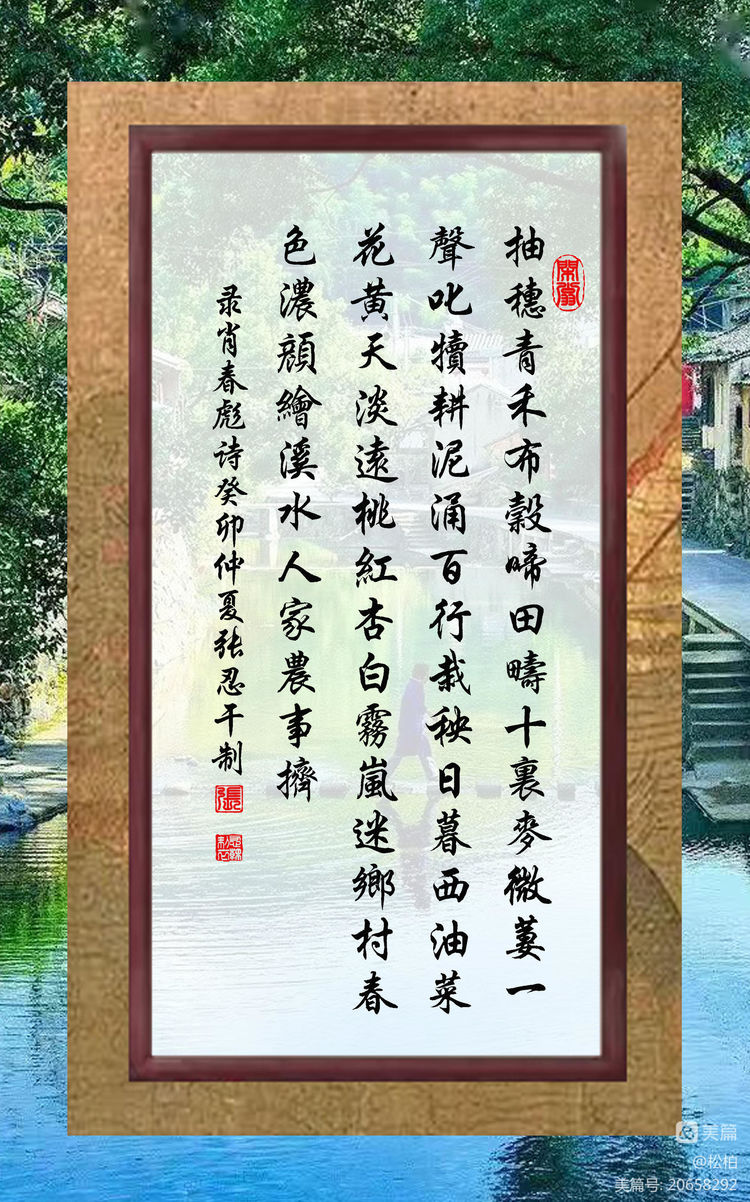 抽穗青禾布穀啼田疇十裏麥微萋一
聲叱犢耕泥涌百行栽秧日暮西油菜
花黄天淡遠桃紅杏白霧嵐迷鄉村春
色濃顔繪溪水人家農事擠
录肖春彪诗癸卯仲夏张忍干制
張
美篇
@松柏
美篇号: 20658292